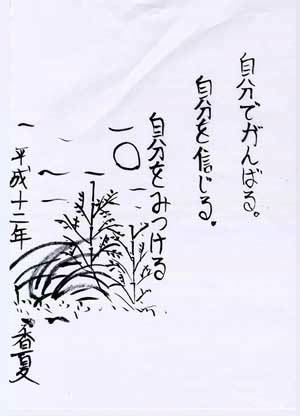 自分でがんばる。
自分を信じる。
自分をみつける
一〇
平成十二年
香夏